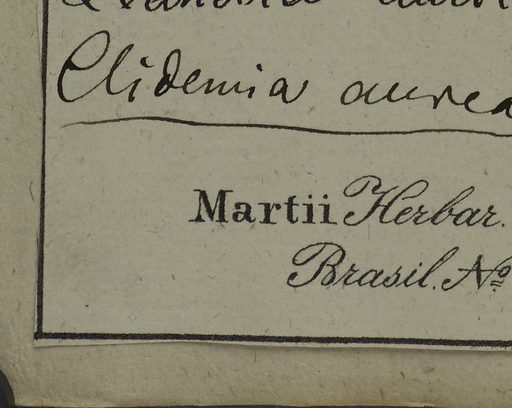 Clidemia aurea
Martii Herbar.
Brasil. Nº